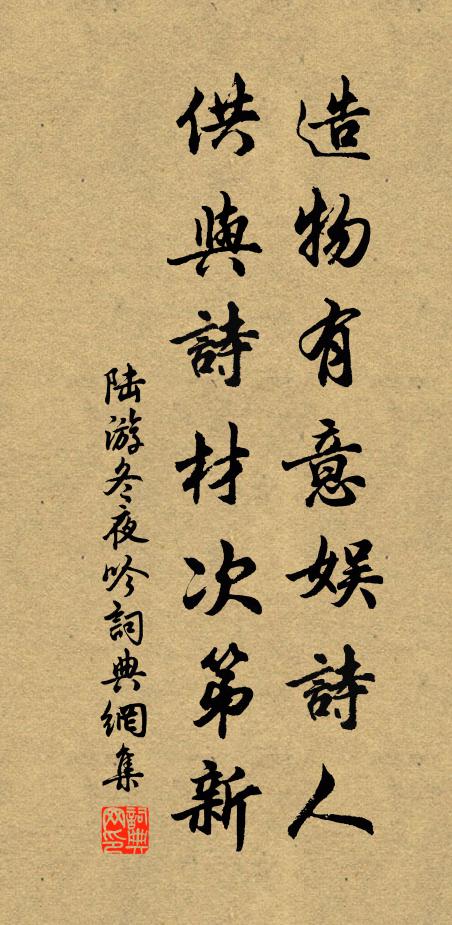 造物有意娱詩人
供與詩材次第新
陆游冬夜吟詞典網集
詞典网印